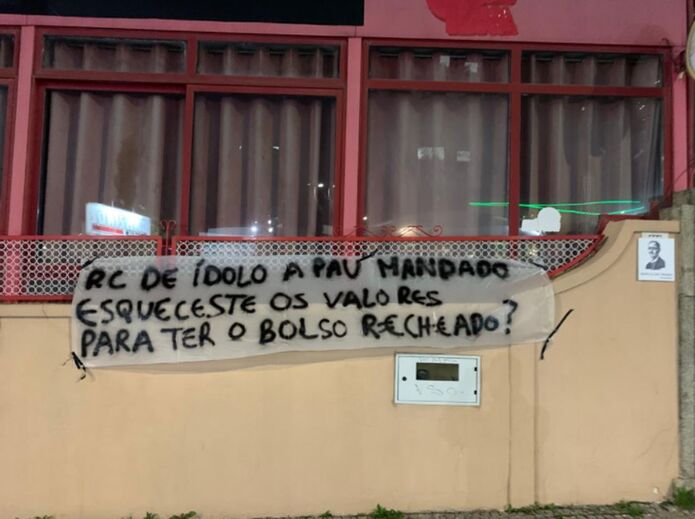 RC DE ÍDOLO A PAU MANDADO
ESQUECESTE OS VALORES
PARA TER O BOLSO RECHEADO?